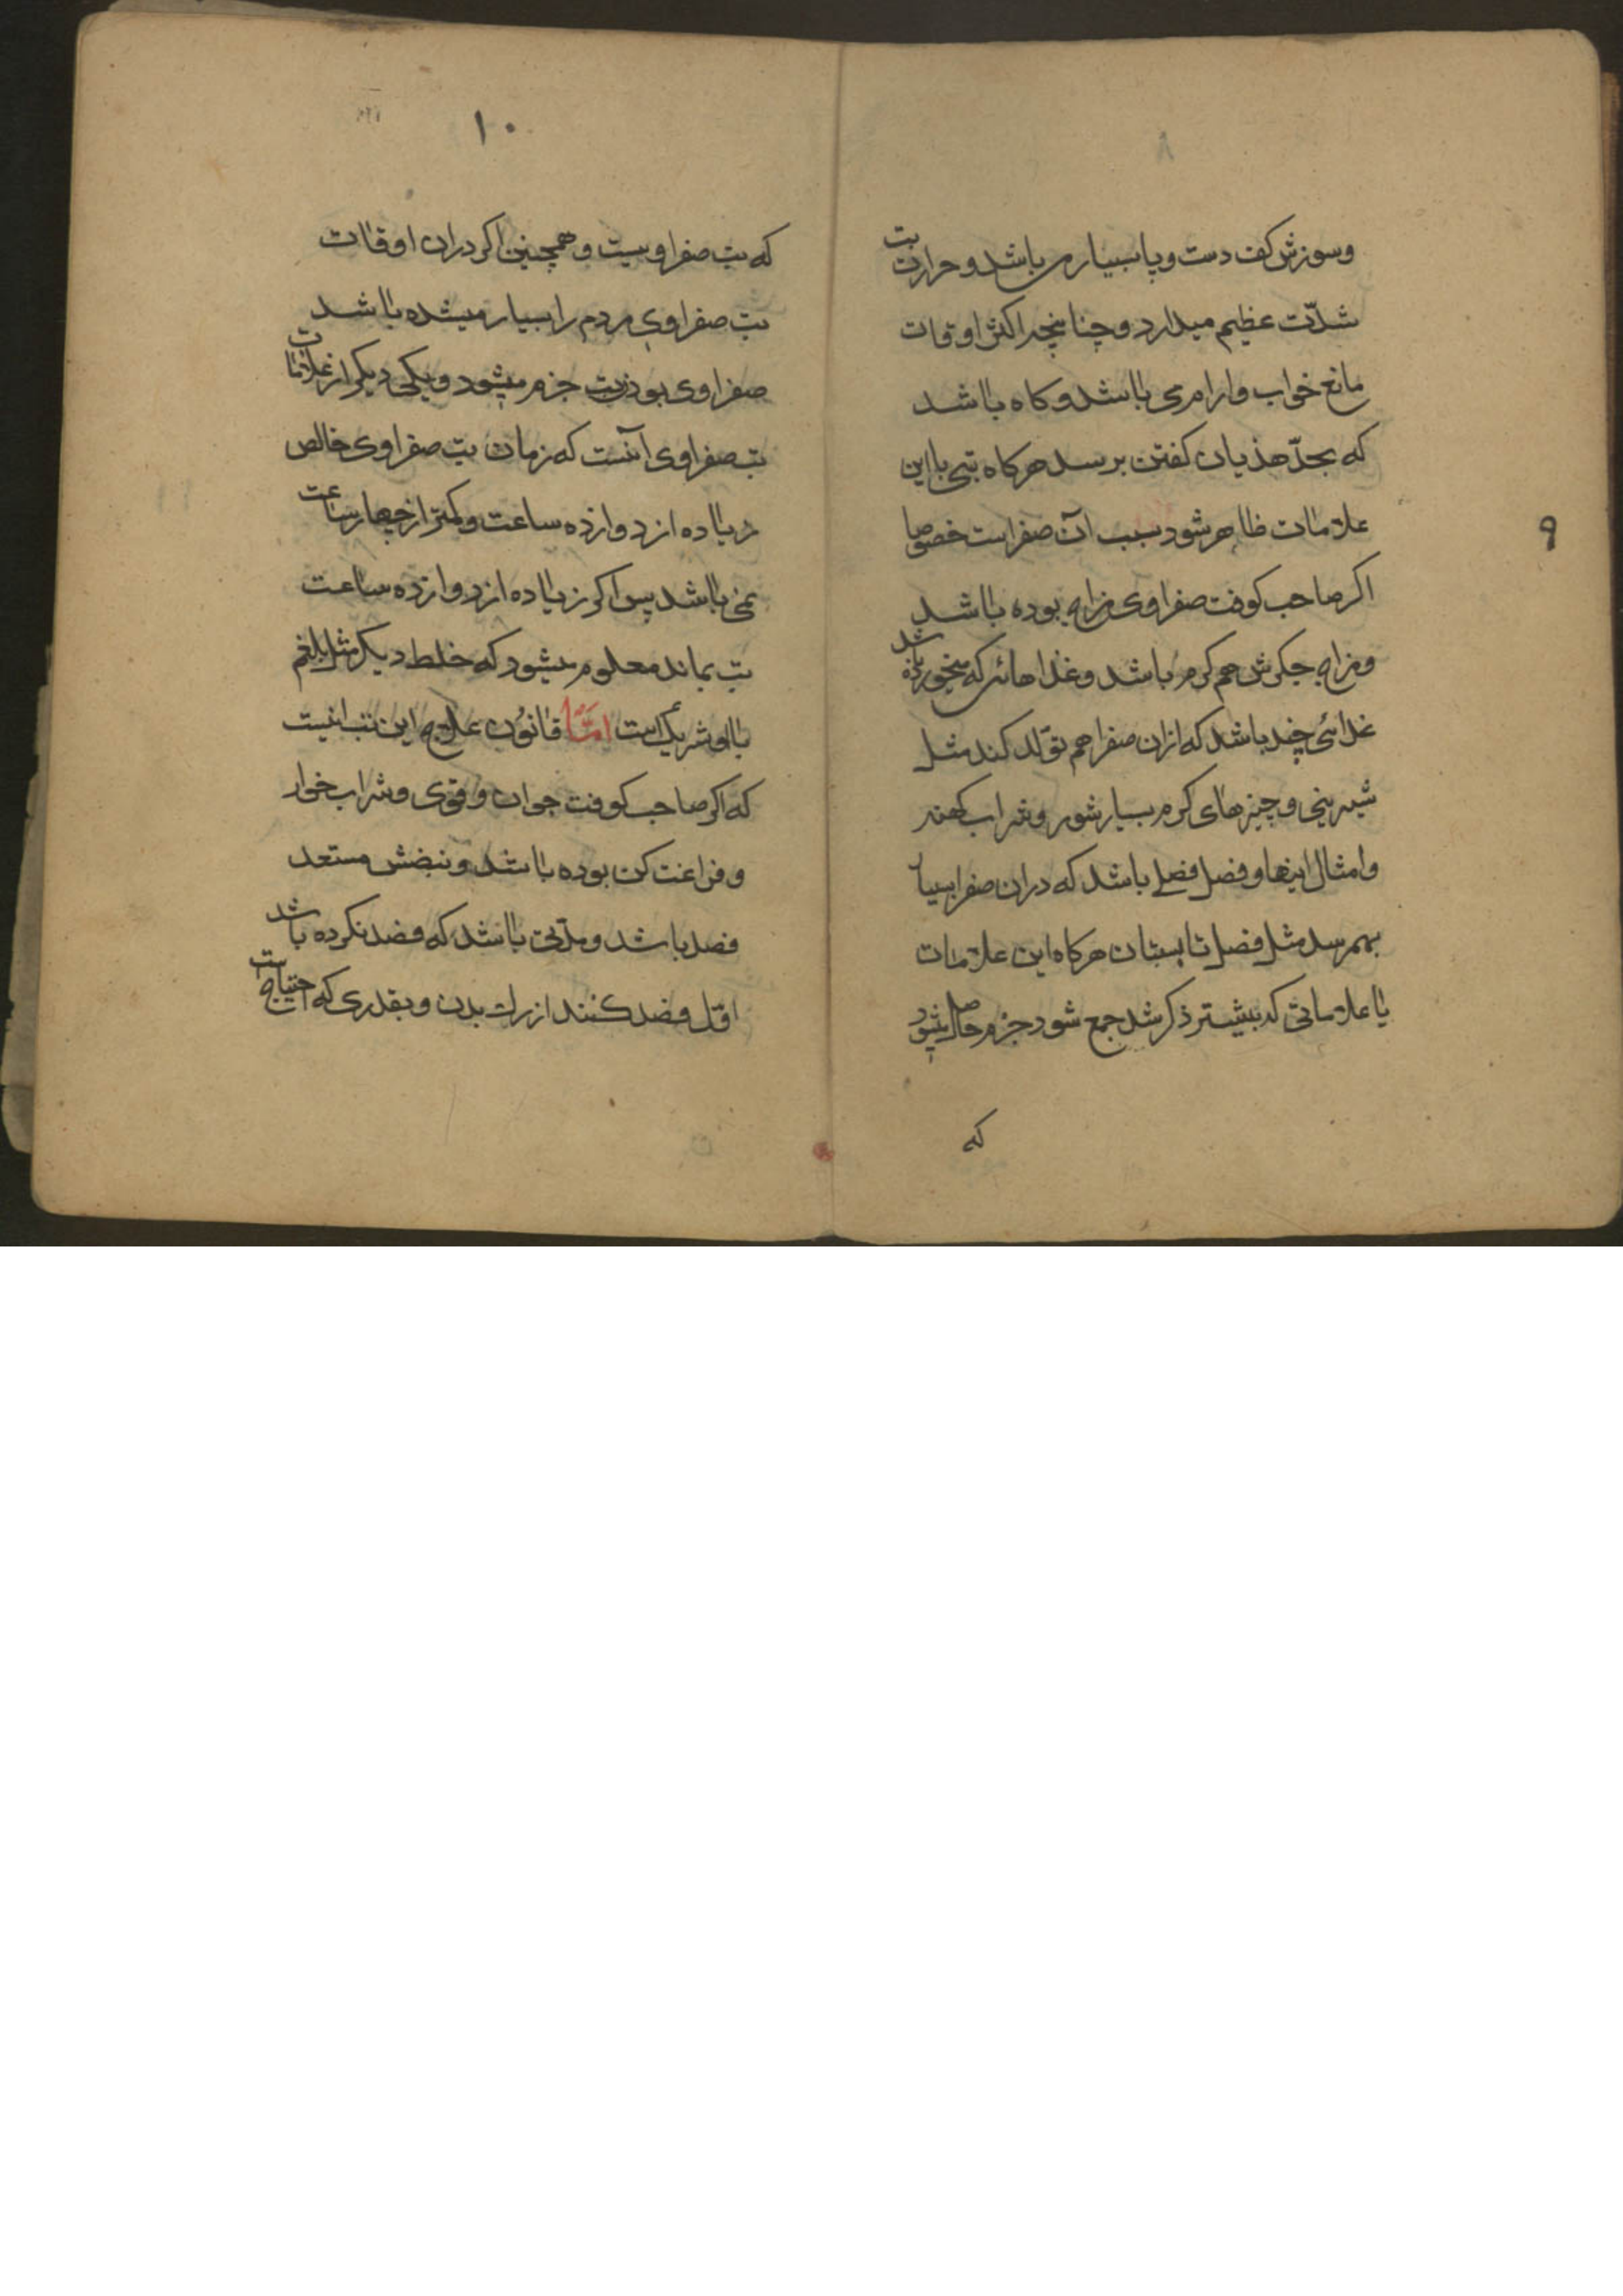 وسوزش کف دست وپا بسیار می باشد و حرارت تب
شدّت عظیم میدارد و چنانچه اکثر اوقات
مانع خواب وارام می باشد و کاه باشد
که بحدّ هذیان کفتن برسد هرکاه تبی با این
علامات ظاهر شود سبب آن صفراست خصوصا
اکر صاحب کوفت صفراوی مزاج بوده باشد
ومزاج جکرش هم کرم باشد و غذاهائی که میخورده باشد
غذائی چند باشد که ازان صفرا هم تولّد کند مثل
شیرینی و چیزهای کرم بسیار شور و شراب کهنه
وامثال اینها و فصل فصلی باشد که دران صفرا بسیار
بهمرسد مثل فصل تابستان هرکاه این علامات
یا علاماتی که بیشتر ذکر شد جمع شود جزم حاصل میشود
که
۹
۸
۱۰
که تب صفراویست و همچنین اکر دران اوقات
تب صفراوی مردم را بسیار میشده باشد
صفراوی بودن تب جزم میشود و یکی دیکر از علامات
تب صفراوی آنست که زمان تب صفراوی خالص
زیاده از دوازده ساعت و کمتر از چهار ساعت
نمی باشد پس اکر زیاده از دوازده ساعت
تب بماند معلوم میشود که خلط دیکر مثل بلغم
با او شریک است امّا قانون علاج این تب اینست
که اکر صاحب کوفت جوان و قوی و شراب خوار
و فراغت کن بوده باشد و نبضش مستعد
فصد باشد و مدّتی باشد که فصد نکرده باشد
اوّل فصد کنند از رك بدن و بقدری که احتیاج است